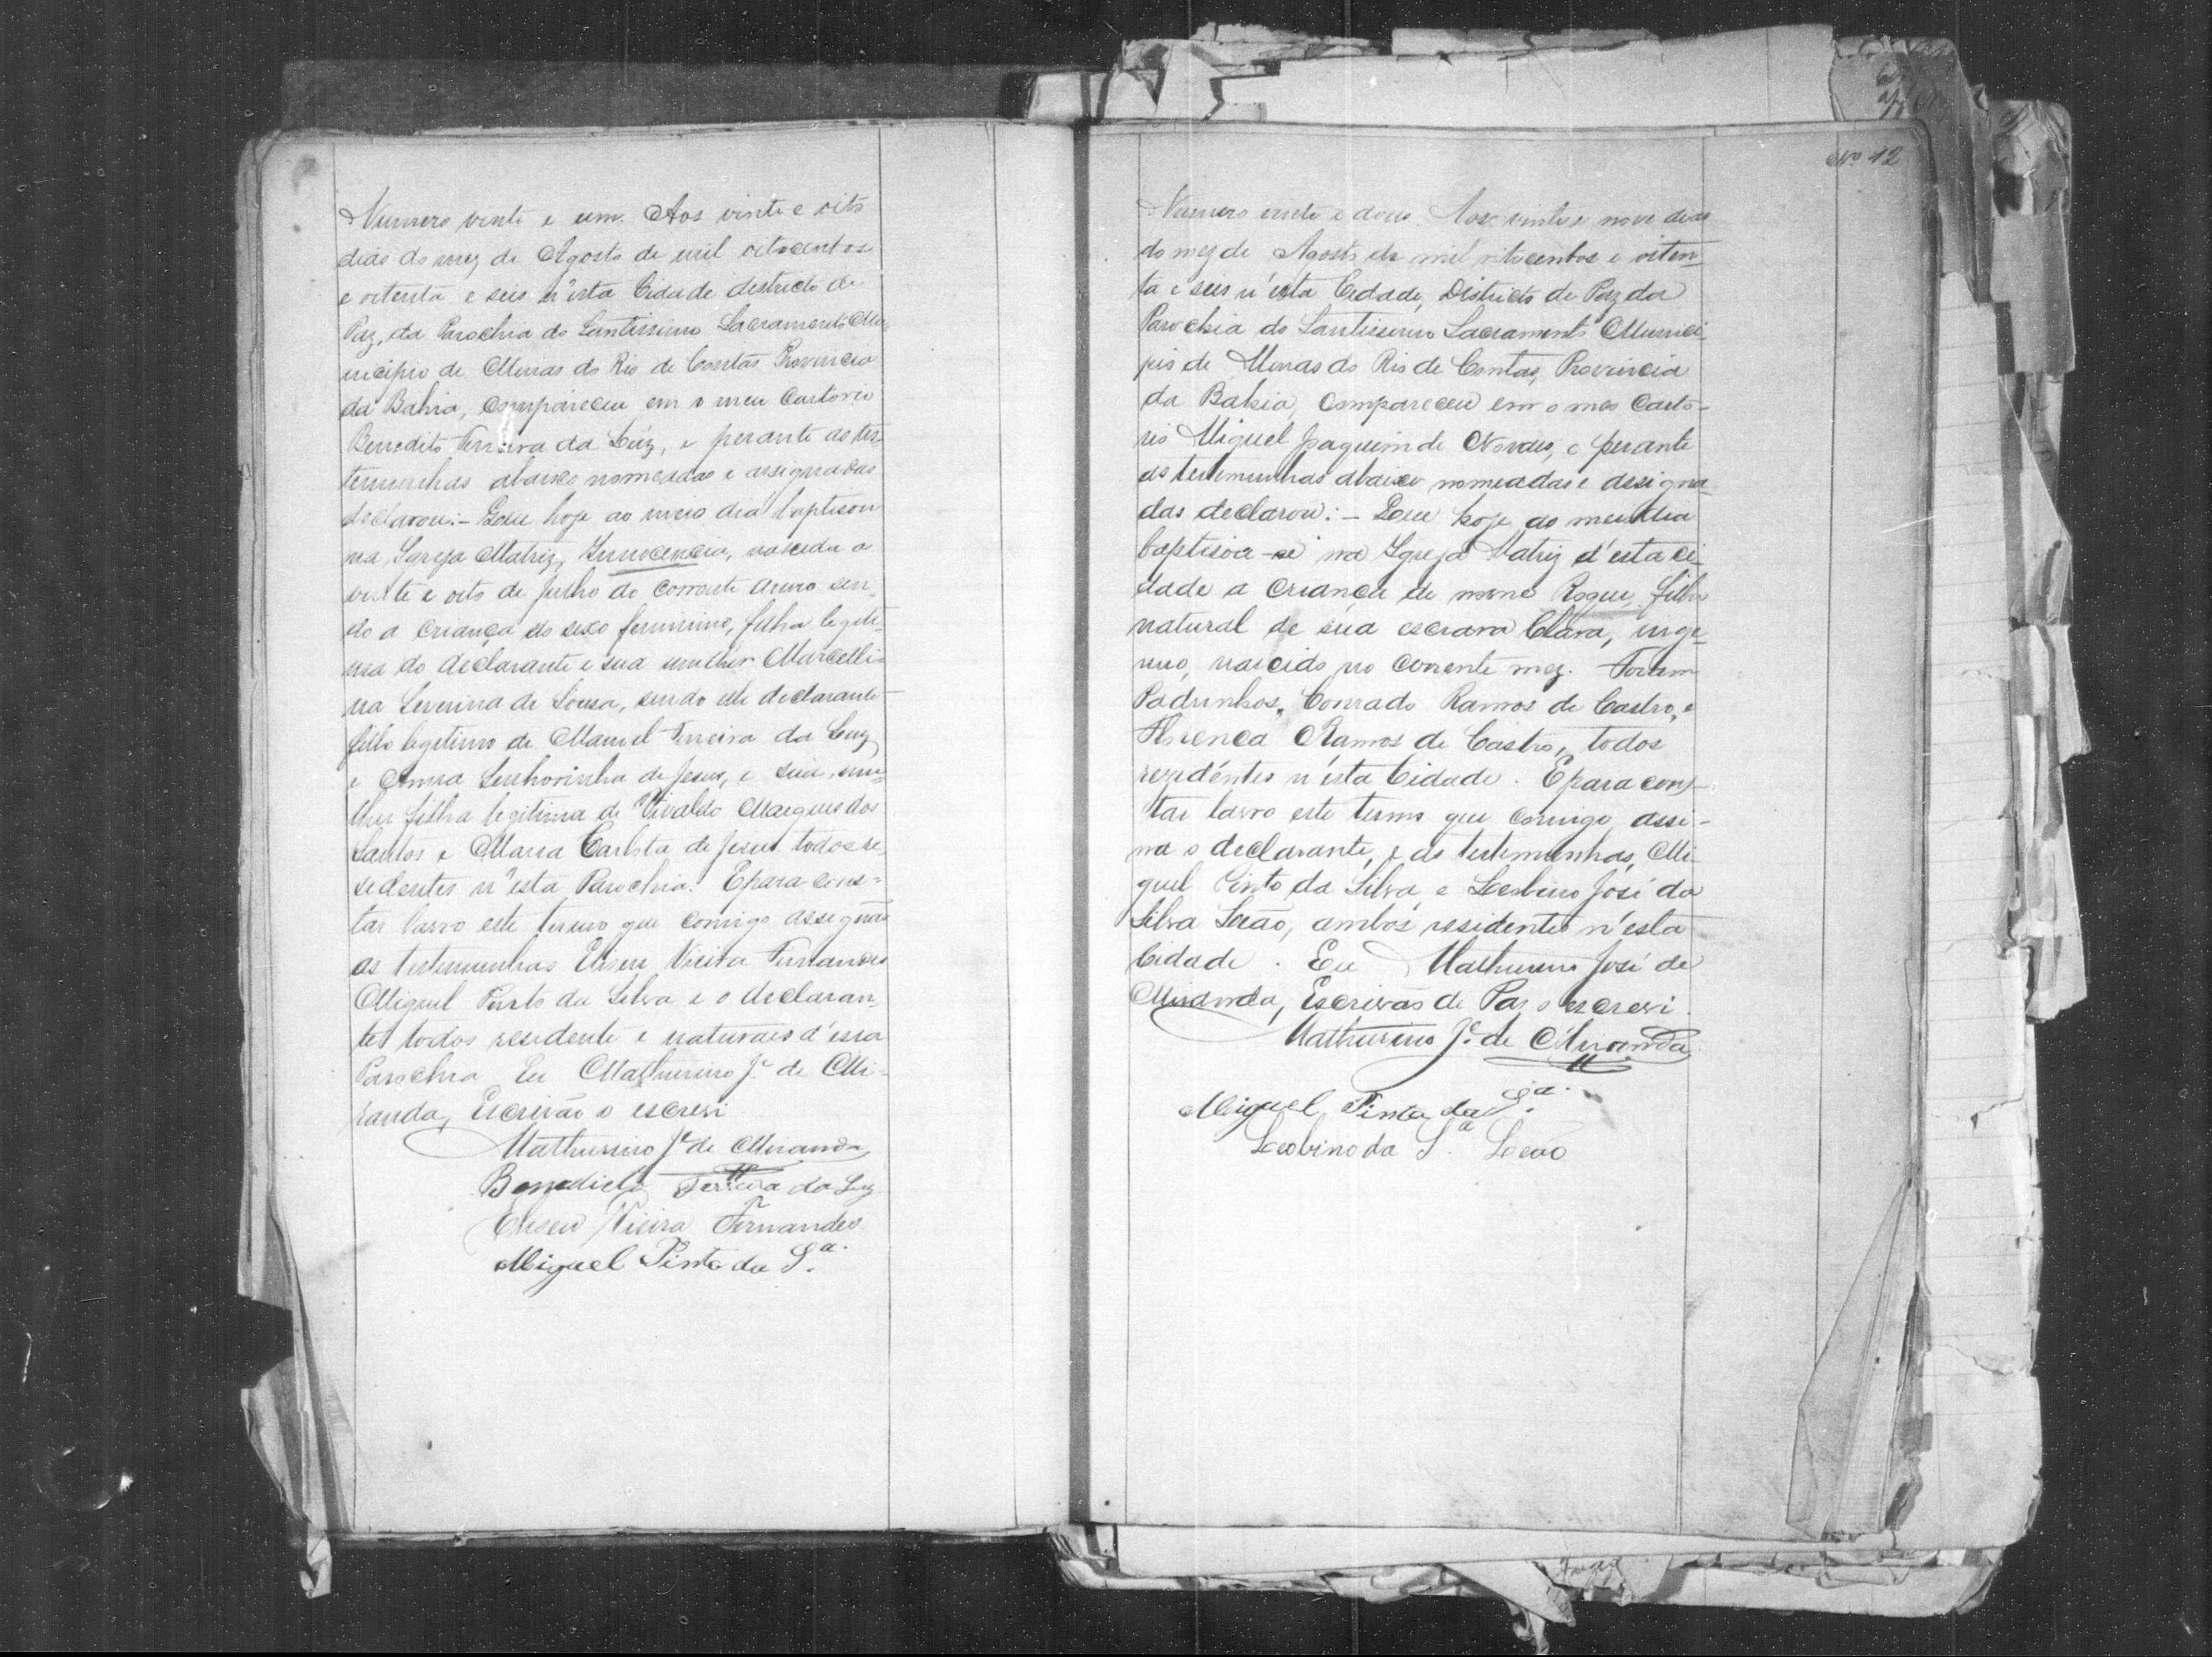 Numero vinte e um. Aos vinte e oito
dias do mez de Agosto de mil oitocentos
e oitenta e seis n'esta Cidade districto de
Paz, da Parochia do Santissimo Sacramento Mu-
nicipio de Minas do Rio de Contas Provincia
da Bahia, compareceu em o meu Cartorio
Benedito Ferreira da Luz, e perante as tes-
temunhas abaixo nomeadas e assignadas
declarou:- Que hoje ao meio dia baptisou
na Igreja Matriz, Innocencia, nascida a
vinte e oito de Julho do corrente anno sen-
do a criança do sexo feminino, filha legiti-
ma do declarante e sua mulher Marcelli-
na Severina de Sousa, sendo elle declarante
filho legitimo de Manuel Ferreira da Luz
e Anna Senhorinha de Jesus, e sua mu-
lher filha legitima de Vivaldo Marques dos
Santos e Maria Carlota de Jesus todos re-
sidentes n'esta Parochia. E para cons=
tar lavro este termo que comigo assignão
as testemunhas Eliseu Vieira Fernandes
Miguel Pinto da Silva e o declaran-
te todos residente e naturaes d'essa
Parochia Eu Mathurino J.e de Mi-
randa, Escrivão o escrevi
Mathurino J.e de Miranda
Benedicto Ferreira da Luz
Eliseu Vieira Fernandes
Miguel Pinto da S.a
No 12
Numero vinte e dous. Aos vinte e nove dias
do mez de Agosto de mil oitocentos e oiten-
ta e seis n'esta Cidade, Districto de Paz da
Parochia do Santissimo Sacramento Munici-
pio de Minas do Rio de Contas, Provincia
da Bahia, compareceu em o meo Carto-
rio Miguel Joaquim de Novaes, e perante
as testemunhas abaixo nomeadas e assigna-
das declarou:- Que hoje ao meio dia
baptisou-se na Igreja Matriz d'esta ci-
dade a criança de nome Roque, filho
natural de sua escrava Clara, inge-
nuo, nascido no corrente mez. Foram
Padrinhos, Conrado Ramos de Castro, e
Ramos de Castro, todos
rezidentes n'esta Cidade. E para cons-
tar lavro este termo que comigo assi-
na o declarante, e as testemunhas, Mi-
guel Pinto da Silva e Leobino José da
Silva Leão, ambos residentes n'esta
Cidade. Eu Mathurino José de
Miranda, Escrivão de Paz o escrevi.
Mathurino J.e de Miranda
Miguel Pinto da S.a
Leobino da S.a Leão